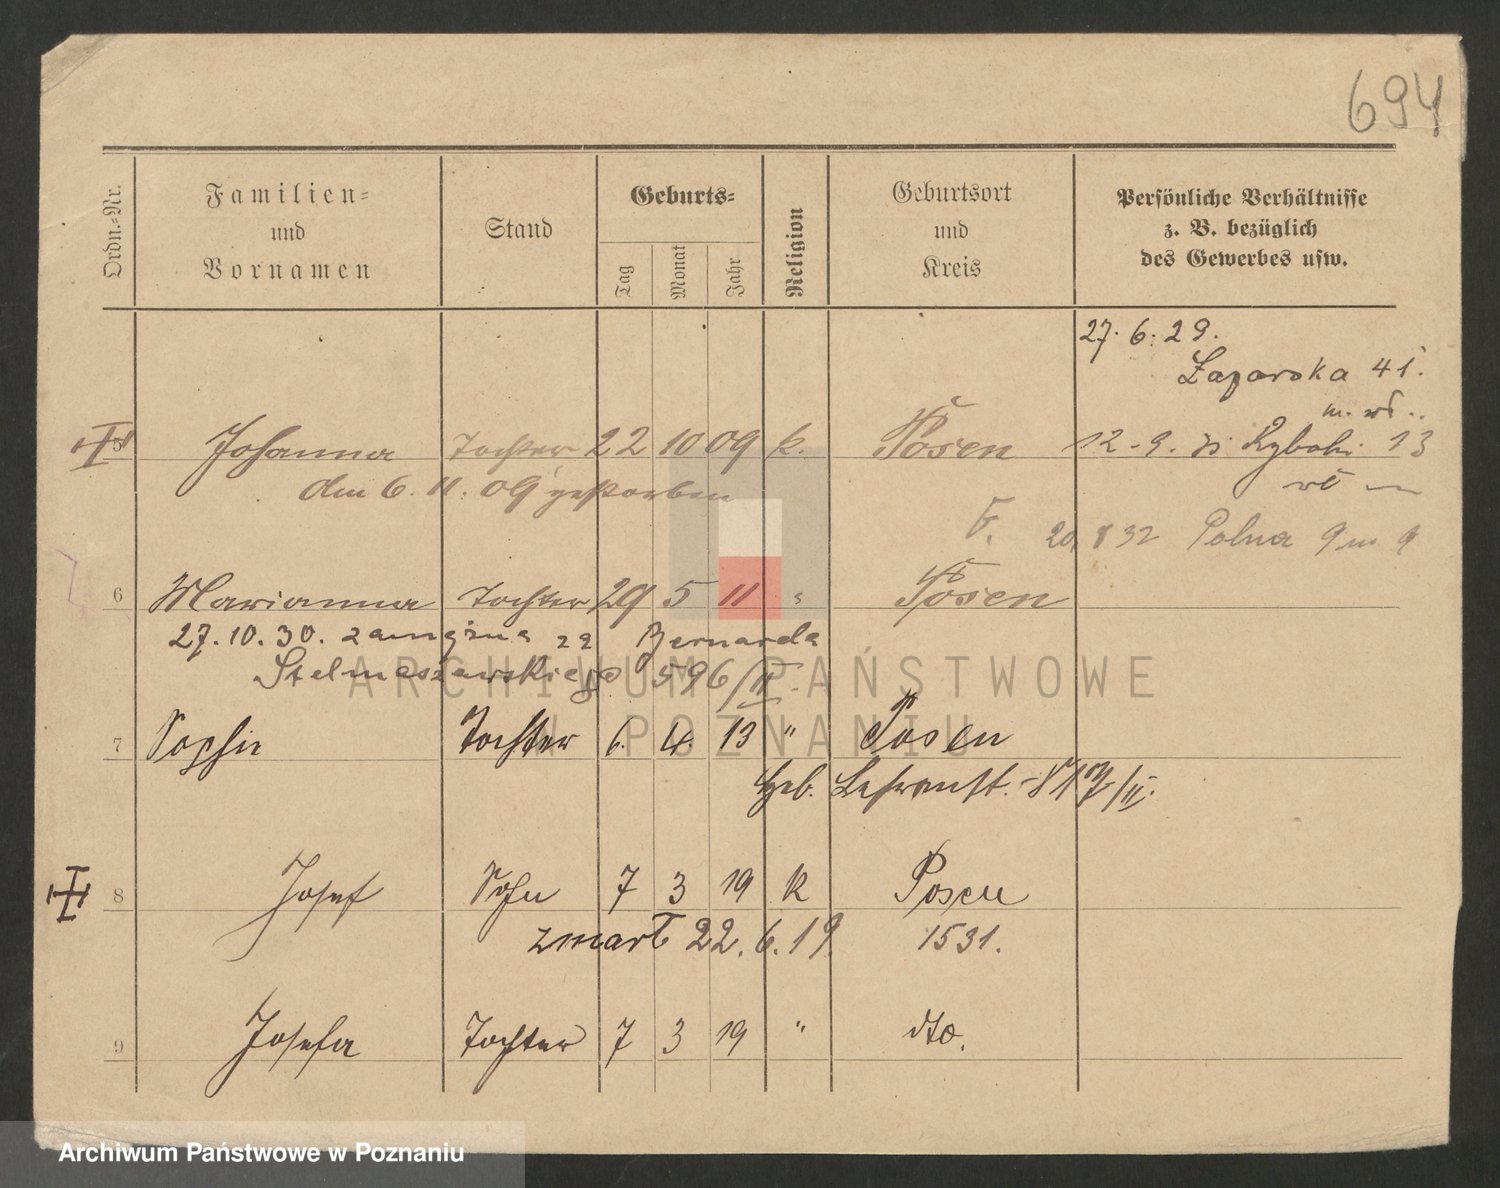 694
Ordn.=Nr.
Familien=
und
Vornamen
Stand
Geburts=
Tag
Monat
Jahr
Religion
Geburtsort
und
Kreis
Persönliche Verhältnisse
z. B. bezüglich
des Gewerbes usw.
27. 6. 29.
Łazarska 41.
5 Johanna Tochter 22 10 09 k. Posen 12-9. 13
den 6. 11. 09 gestorben
20 8 32 Polna 9 m 9
6 Marianna Tochter 29 5 11 " Posen
27. 10. 30. zamężna za Bernarda
Stelmaszewskiego 596/II
ARCHIWUM PAŃSTWOWE
W POZNANIU
7 Sophie Tochter 6. 4. 13 " Posen
Geb. 817/II.
8 Josef Sohn 7 3 19 k Posen
zmarł 22. 6. 19. 1531.
9 Josefa Tochter 7 3 19 " dto.
Archiwum Państwowe w Poznaniu